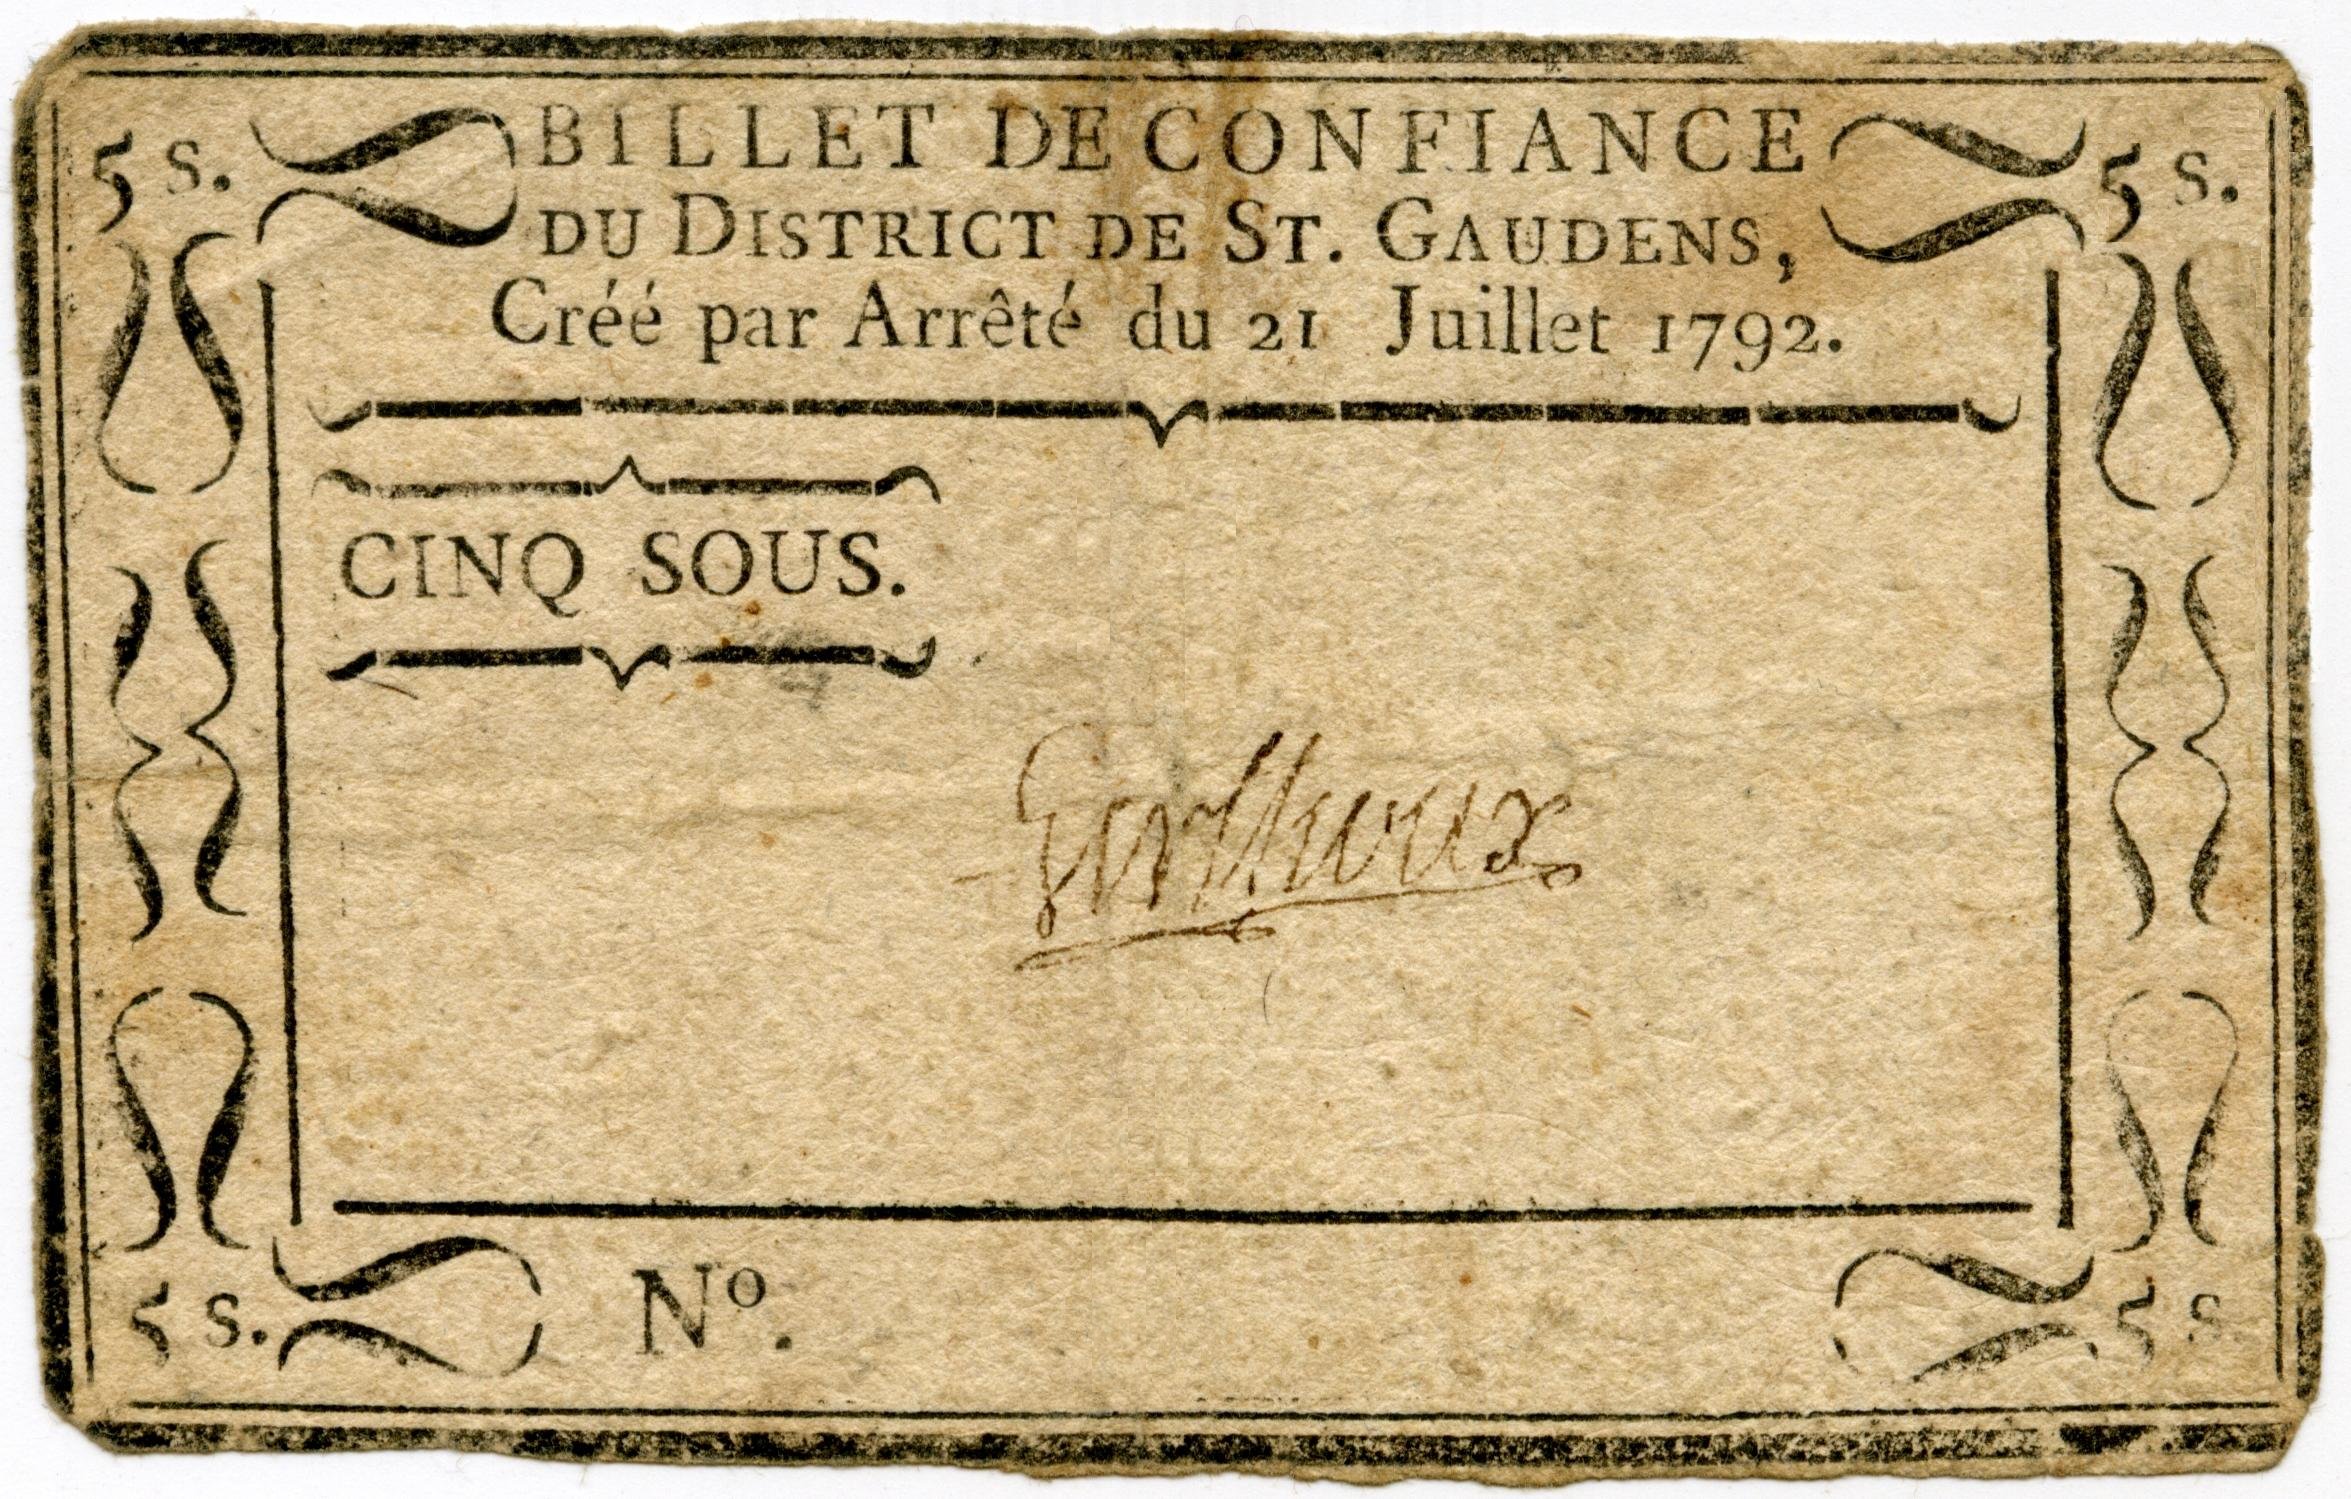 5 s. BILLET DE CONFIANCE 5 s.
DU DISTRICT DE ST. GAUDENS,
Créé par Arrêté du 21 Juillet 1792.
CINQ SOUS.
5 s. Nº. 5 s.